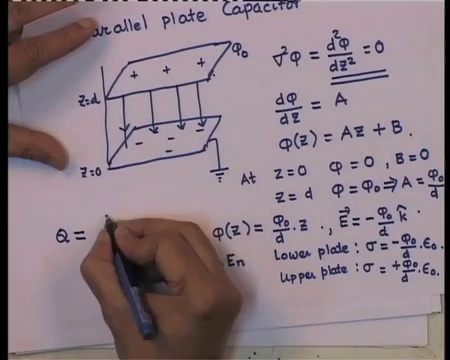 arallel plate Capacitor
φ₀
+ + +
z=d
- - - -
z=0
∇²φ = d²φ/dz² = 0
dφ/dz = A
φ(z) = Az + B.
At z=0 φ=0 , B=0
z=d φ=φ₀ ⇒ A = φ₀/d
φ(z) = φ₀/d . z , E⃗ = -φ₀/d k̂
Q =
.En
Lower plate : σ = -φ₀/d . ε₀.
Upper plate : σ = +φ₀/d . ε₀.